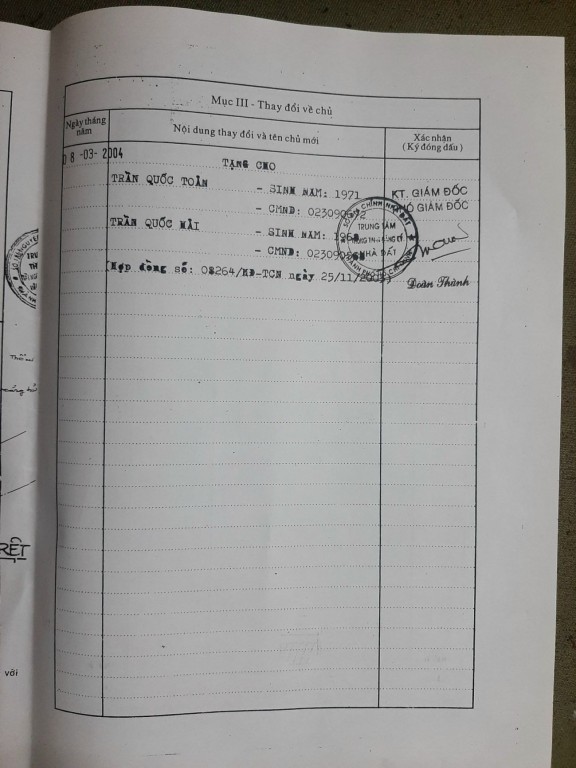 Mục III - Thay đổi về chủ
Ngày tháng năm
Nội dung thay đổi và tên chủ mới
Xác nhận
( Ký đóng dấu )
08 -03- 2004
TẶNG CHO
TRẦN QUỐC TOÀN - SINH NĂM: 1971
KT. GIÁM ĐỐC
PHÓ GIÁM ĐỐC
- CMND:
TRẦN QUỐC HẢI - SINH NĂM:
- CMND:
TRUNG TÂM
NHÀ ĐẤT
(Hợp đồng số: 08264/HĐ-TCN ngày 25/11/
Đoàn Thành
RẾT
với